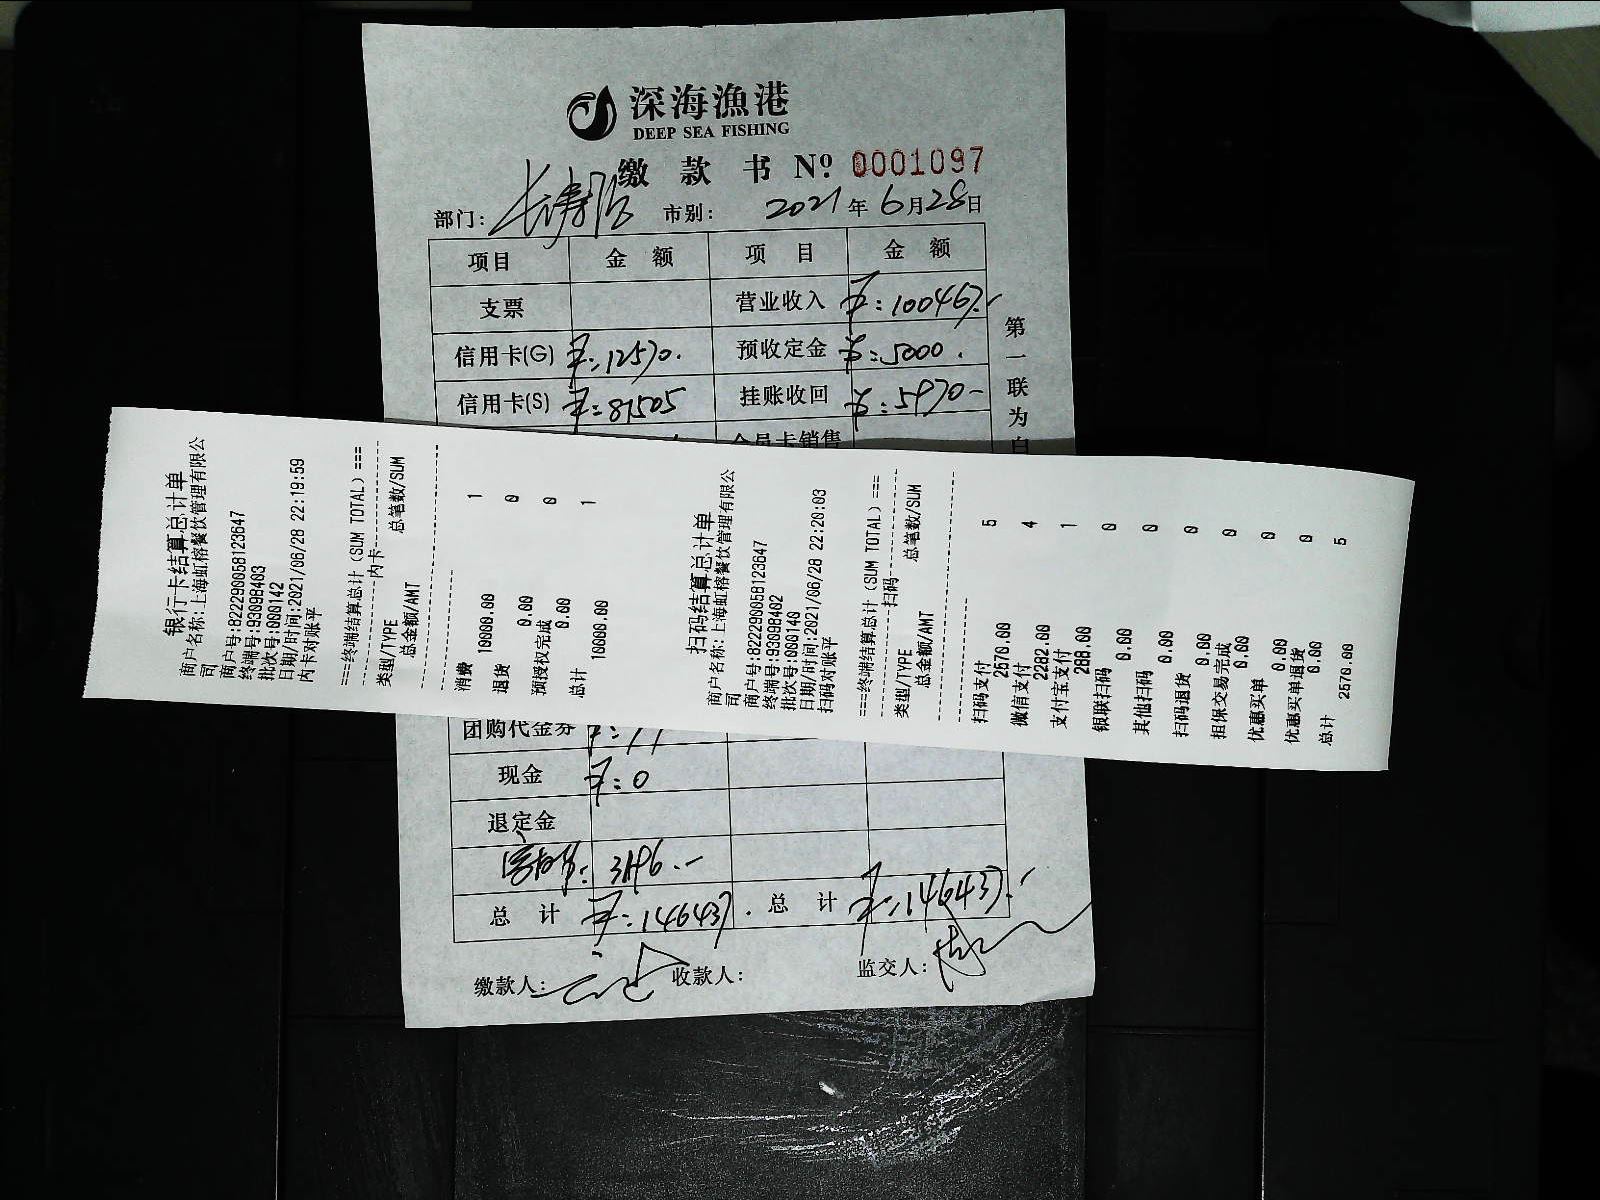 深海漁港
DEEP SEA FISHING
缴 款 书 Nº: 0001097
部门: 长寿路 市别: 2021年6月28日
项目 金 额 项 目 金 额
支票 营业收入
信用卡(G) ¥:12570. 预收定金 ¥:5000.
信用卡(S) ¥:81505 挂账收回 ¥:5970-
会员卡销售
第一联为白
银行卡结算总计单
商户名称:上海虹榕餐饮管理有限公
司
商户号:822290058123647
终端号:93098403
批次号:000142
日期/时间:2021/06/28 22:19:59
内卡对账平
===终端结算总计(SUM TOTAL)===
内卡
类型/TYPE 总笔数/SUM
总金额/AMT
消费 1
10000.00
退货 0
0.00
预授权完成 0
0.00
总计 1
10000.00
扫码结算总计单
商户名称:上海虹榕餐饮管理有限公
司
商户号:822290058123647
终端号:93098402
批次号:000140
日期/时间:2021/06/28 22:20:03
扫码对账平
===终端结算总计(SUM TOTAL)===
扫码
类型/TYPE 总笔数/SUM
总金额/AMT
扫码支付 5
2570.00
微信支付 4
2282.00
支付宝支付 1
288.00
银联扫码 0
0.00
其他扫码 0
0.00
扫码退货 0
0.00
担保交易完成 0
0.00
优惠买单 0
0.00
优惠买单退货 0
0.00
总计 5
2570.00
团购代金券
现金 ¥:0
退定金
总 计 ¥:146437. 总 计 ¥:146437.
缴款人: 收款人: 监交人: